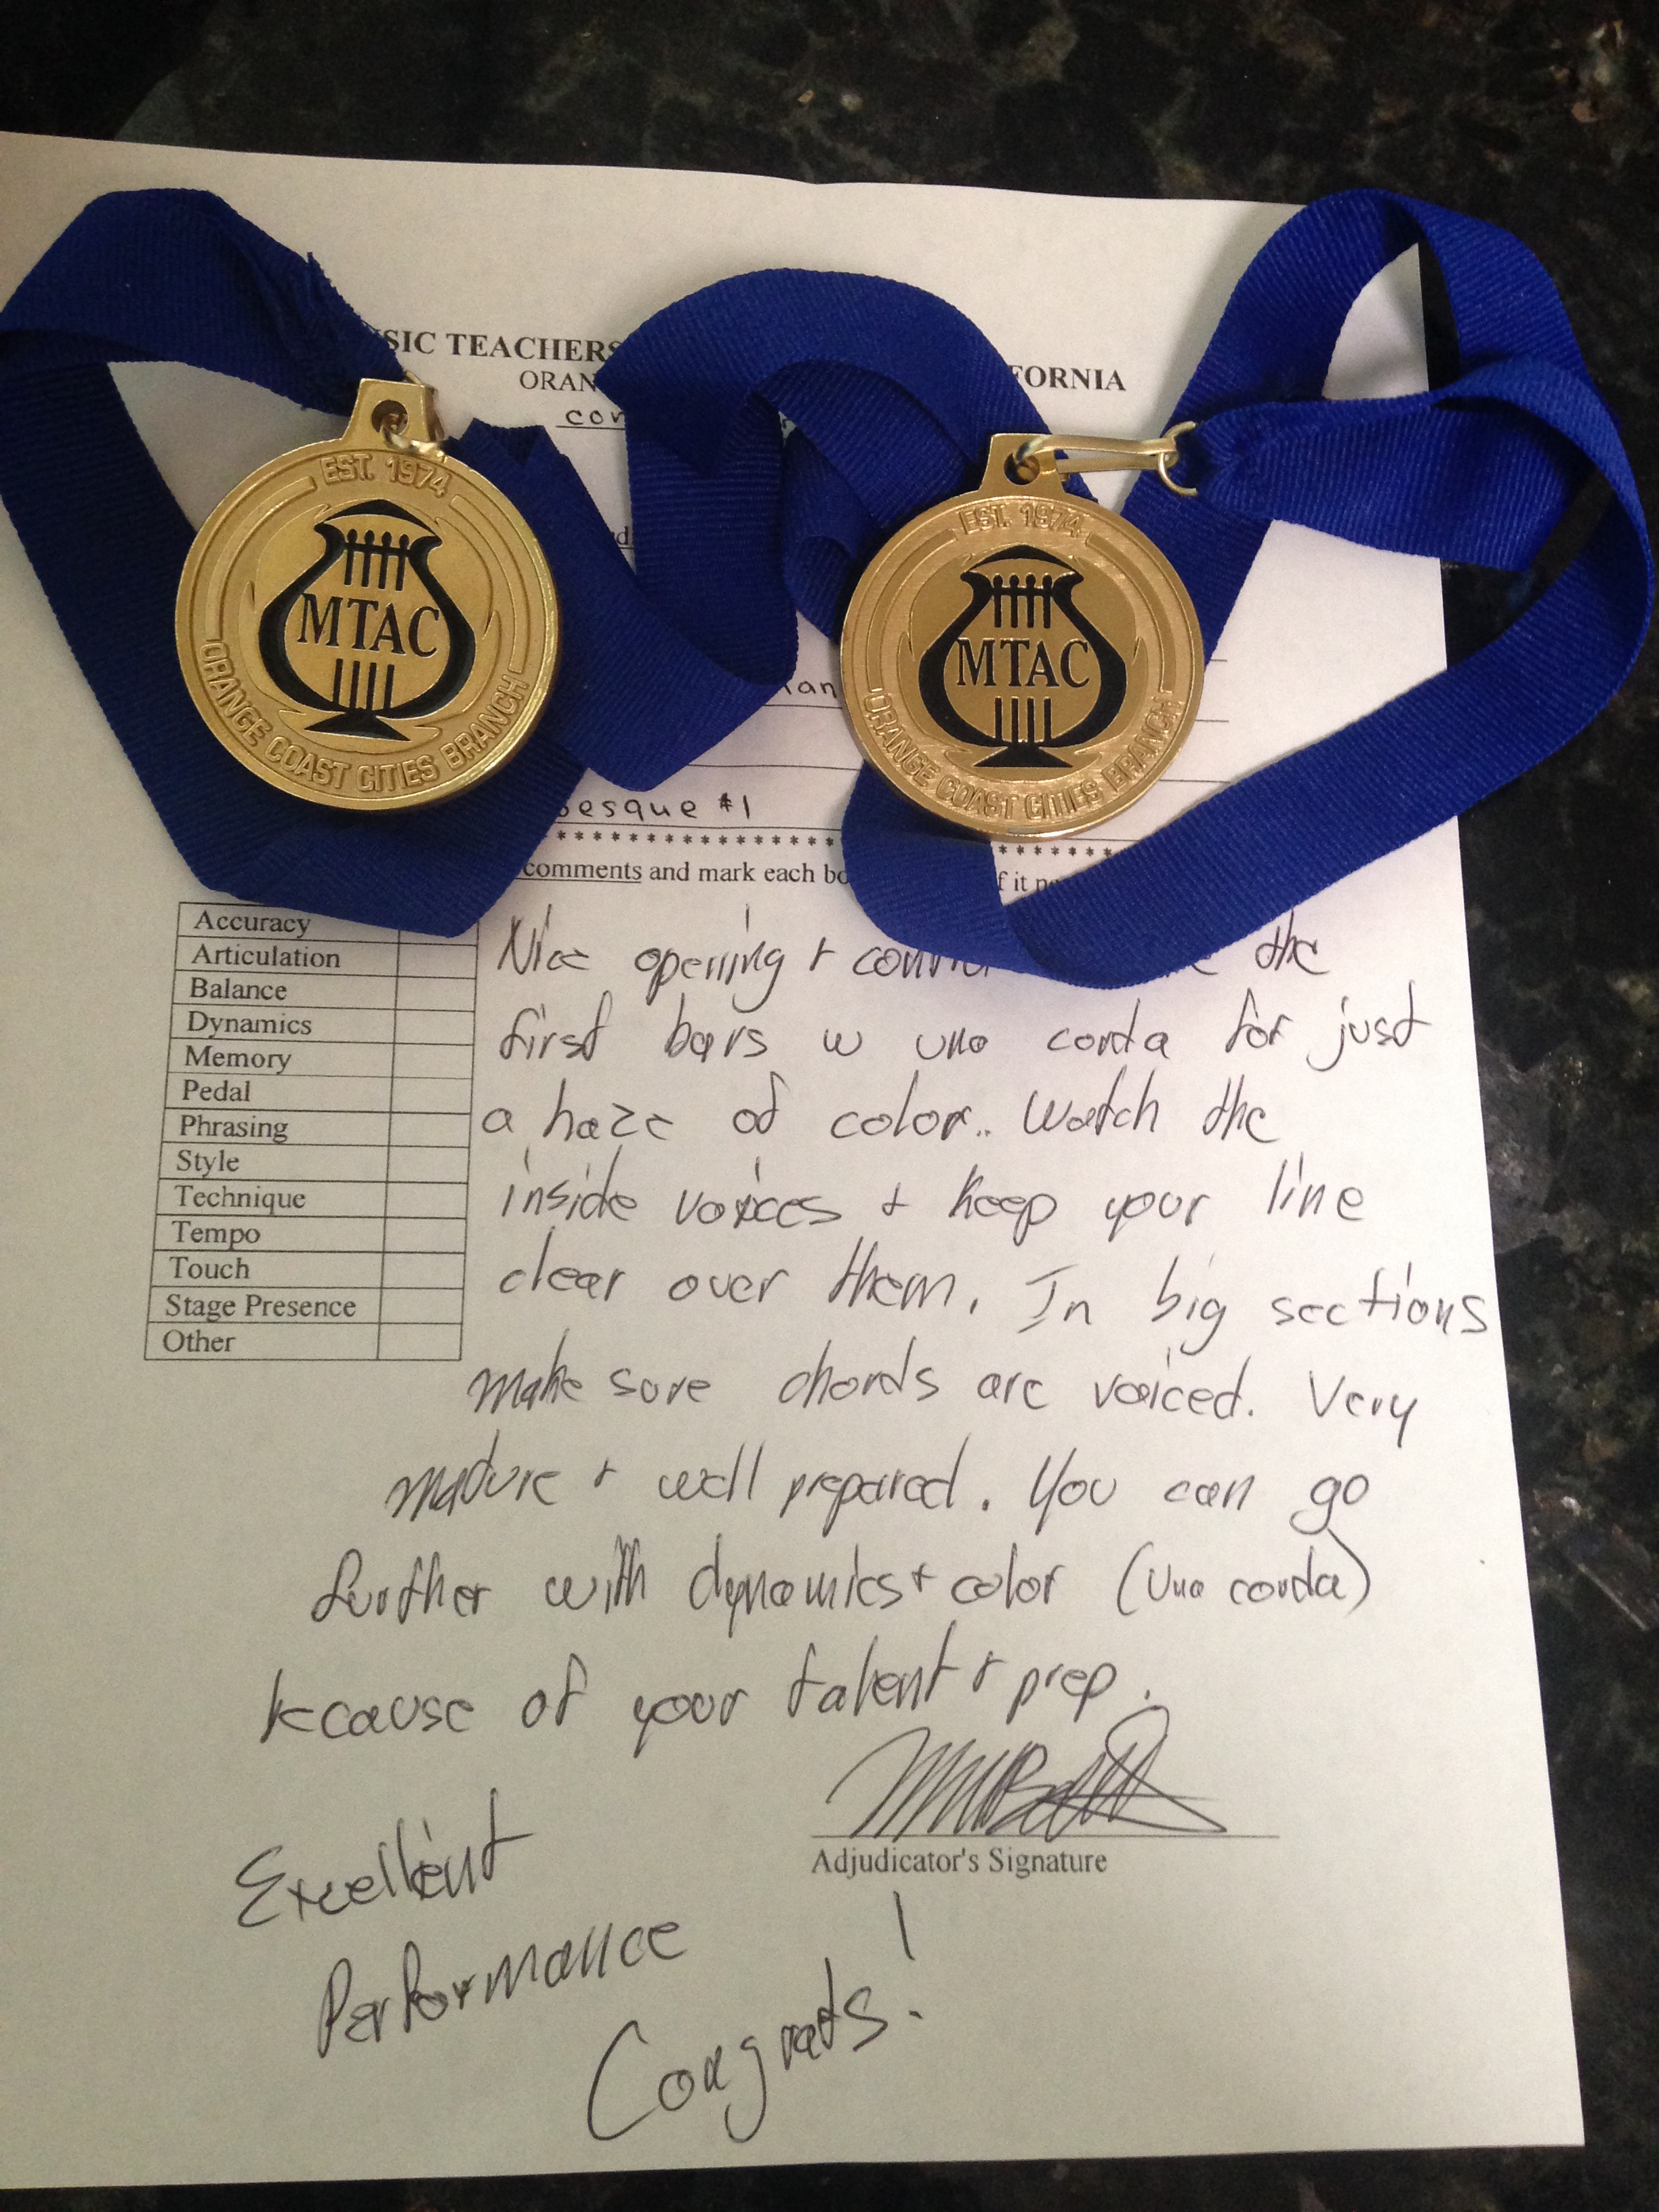 SIC TEACHERS FORNIA
ORAN
con
EST. 1974
MTAC
ORANGE COAST CITIES BRANCH
EST. 1974
MTAC
ORANGE COAST CITIES BRANCH
esque #1
comments and mark each
Accuracy
Articulation
Balance
Dynamics
Memory
Pedal
Phrasing
Style
Technique
Tempo
Touch
Stage Presence
Other
Nice opening + the
first bars w una corda for just
a haze of color.. Watch the
inside voices + keep your line
clear over them. In big sections
make sure chords are voiced. Very
mature + well prepared. You can go
further with dynamics + color (una corda)
because of your talent + prep.
Adjudicator's Signature
Excellent
Performance
Congrats!